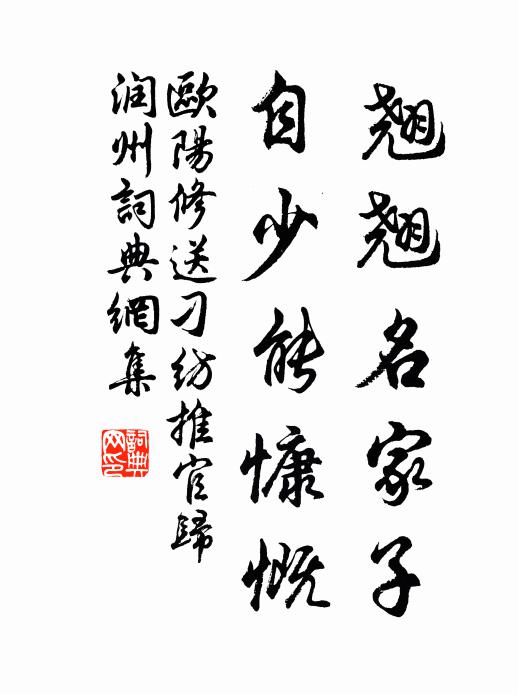 翹翹名家子
自少能慷慨
歐陽修送刁紡推官歸
润州詞典網集
詞典
网印